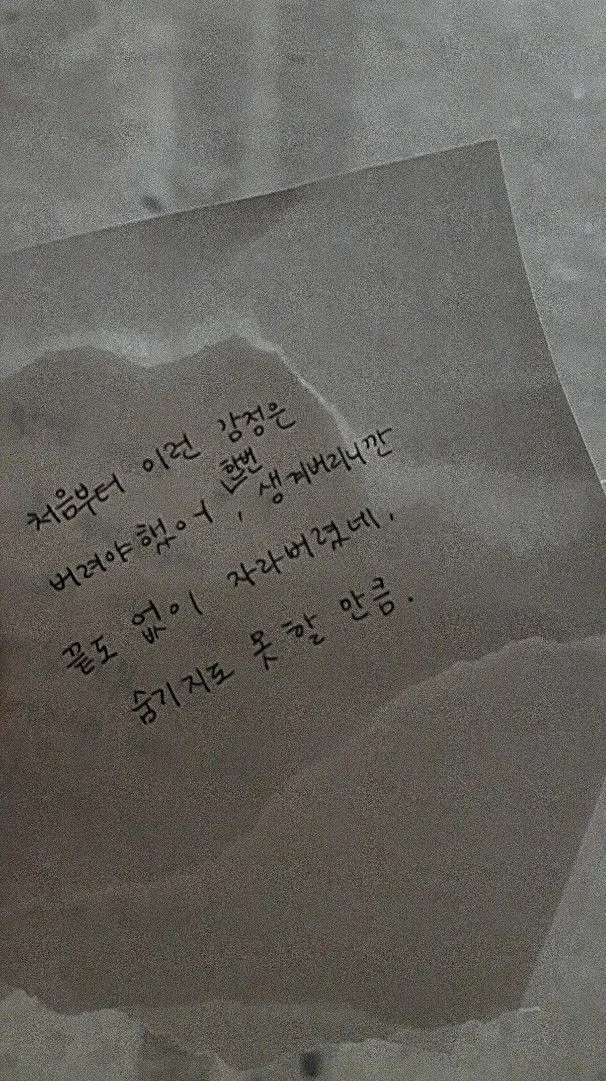 처음부터 이런 감정은
버려야했어, 한번 생겨버리니깐
끝도 없이 자라버렸네.
숨기지도 못할 만큼.